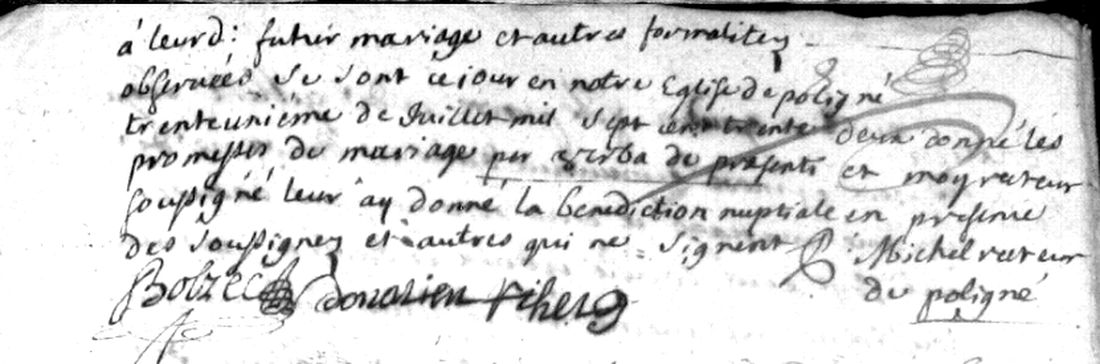 à leurd: futur mariage et autres formalitez
observées se sont ce jour en notre Eglise de poligné
trenteunième de Juillet mil sept cent trente deux donné les
promesses de mariage per verba de presenti et moy recteur
soussigné leur ay donné la benediction nuptiale en presence
des soussignez et autres qui ne signent P: Michel recteur
de poligné
Bolzec donatien